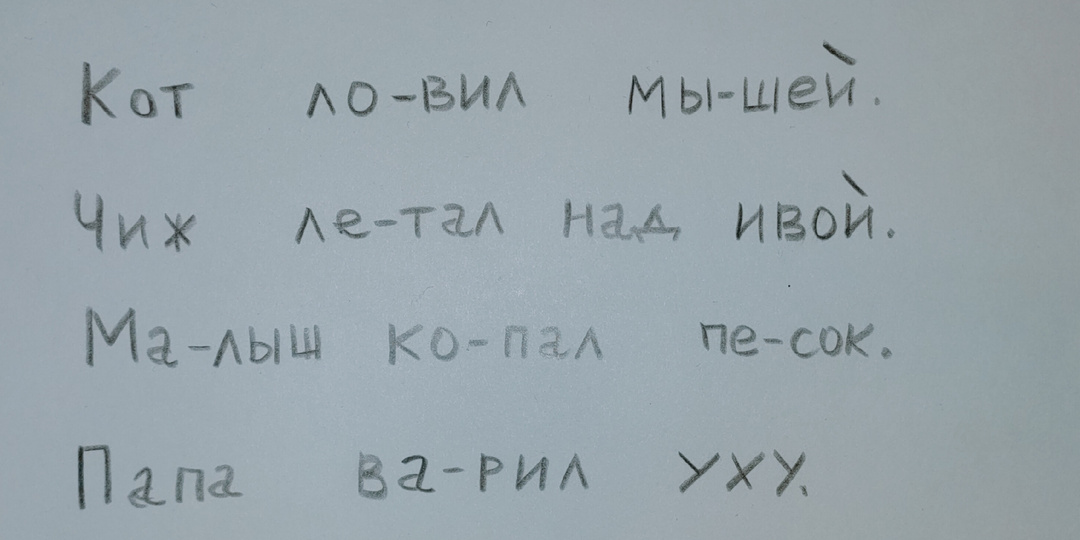 Кот ло-вил мы-шей.
Чиж ле-тал над ивой.
Ма-лыш ко-пал пе-сок.
Папа ва-рил уху.